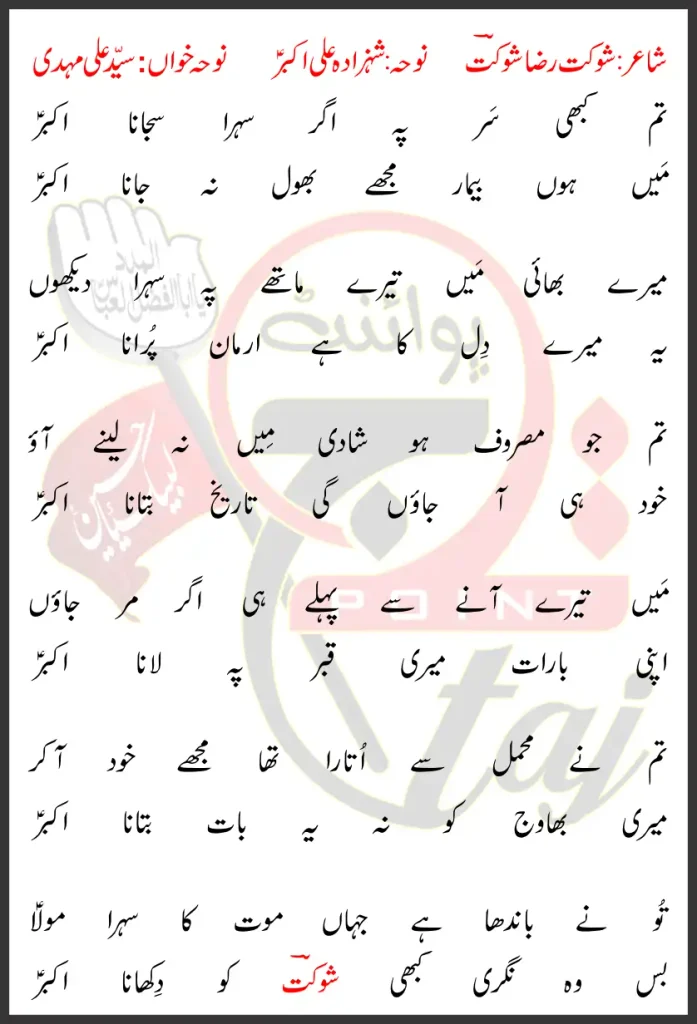 شاعر: شوکت رضا شوکتؔ نوحہ: شہزادہ علی اکبرؑ نوحہ خواں: سیّد علی مہدی
تم کبھی سَر پہ اگر سہرا سجانا اکبرؑ
مَیں ہوں بیمار مجھے بھول نہ جانا اکبرؑ
میرے بھائی مَیں تیرے ماتھے پہ سہرا دیکھوں
یہ میرے دِل کا ہے ارمان پُرانا اکبرؑ
تم جو مصروف ہو شادی مِیں نہ لینے آؤ
خود ہی آ جاؤں گی تاریخ بتانا اکبرؑ
مَیں تیرے آنے سے پہلے ہی اگر مر جاؤں
اپنی بارات میری قبر پہ لانا اکبرؑ
تم نے محمل سے اُتارا تھا مجھے خود آ کر
میری بھاوج کو نہ یہ بات بتانا اکبرؑ
تُو نے باندھا ہے جہاں موت کا سہرا مولاؑ
بس وہ نگری کبھی شوکتؔ کو دِکھانا اکبرؑ
المدد
یا ابالفضل العباس
لبیک یا حسین
پوائنٹ
تاج
POINT
taj